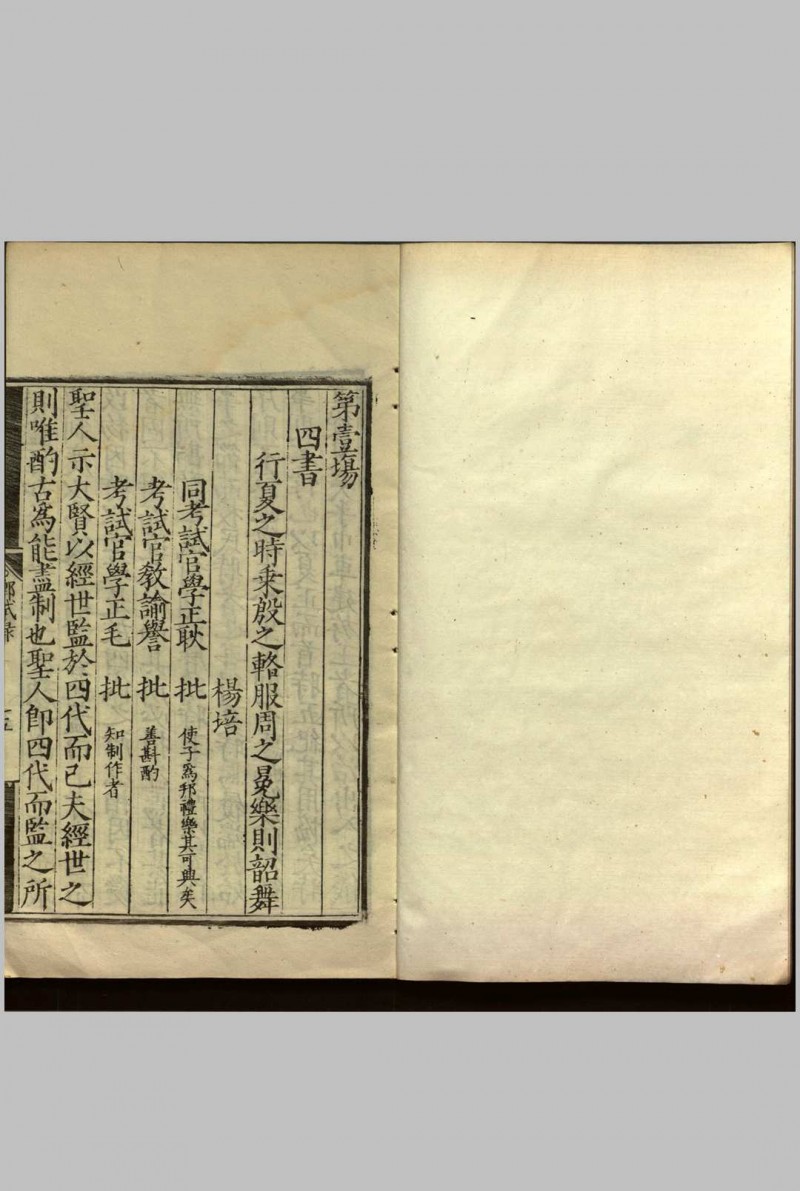 第壹場
四書
行夏之時乗殷之輅服周之冕樂則韶舞
楊培
同考試官學正耿 批 使子爲邦禮樂其可興矣
考試官敎諭譽 批 善斟酌
考試官學正毛 批 知制作者
聖人示大賢以經世監於四代而已夫經世之
則唯酌古爲能盡制也聖人卽四代而監之所
試錄